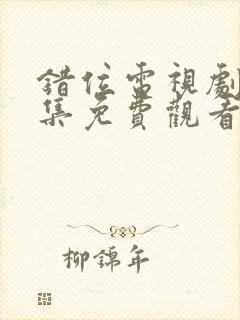 錯位電視劇
集免費觀看
柳錦年